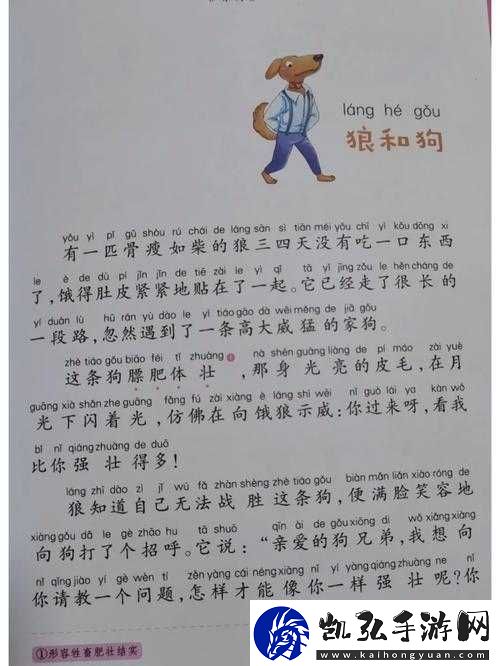 láng hé gǒu
狼和狗
yǒu yì pǐ gǔ shòu rú chái de láng sān sì tiān méi yǒu chī yì kǒu dōng xi
有一匹骨瘦如柴的狼三四天没有吃一口东西
le è de dù pí jǐn jǐn de tiē zài le yì qǐ tā yǐ jīng zǒu le hěn cháng de
了，饿得肚皮紧紧地贴在了一起。它已经走了很长的
yí duàn lù hū rán yù dào le yì tiáo gāo dà wēi měng de jiā gǒu
一段路，忽然遇到了一条高大威猛的家狗。
zhè tiáo gǒu biāo féi tǐ zhuàng nà shēn guāng liàng de pí máo zài yuè
这条狗膘肥体壮①，那身光亮的皮毛，在月
guāng xià shǎn zhe guāng fǎng fú zài xiàng è láng shì wēi nǐ guò lái ya kàn wǒ
光下闪着光，仿佛在向饿狼示威：你过来呀，看我
bǐ nǐ qiáng zhuàng de duō
比你强壮得多！
láng zhī dào zì jǐ wú fǎ zhàn shèng zhè tiáo gǒu biàn mǎn liǎn xiào róng de
狼知道自己无法战胜这条狗，便满脸笑容地
xiàng gǒu dǎ le gè zhāo hu tā shuō qīn ài de gǒu xiōng dì wǒ xiǎng xiàng
向狗打了个招呼。它说：“亲爱的狗兄弟，我想向
nǐ qǐng jiào yí gè wèn tí zěn yàng cái néng xiàng nǐ yí yàng qiáng zhuàng ne nǐ
你请教一个问题，怎样才能像你一样强壮呢？你
①形容牲畜肥壮结实
凯弘手游网
www.kaihongyuan.com